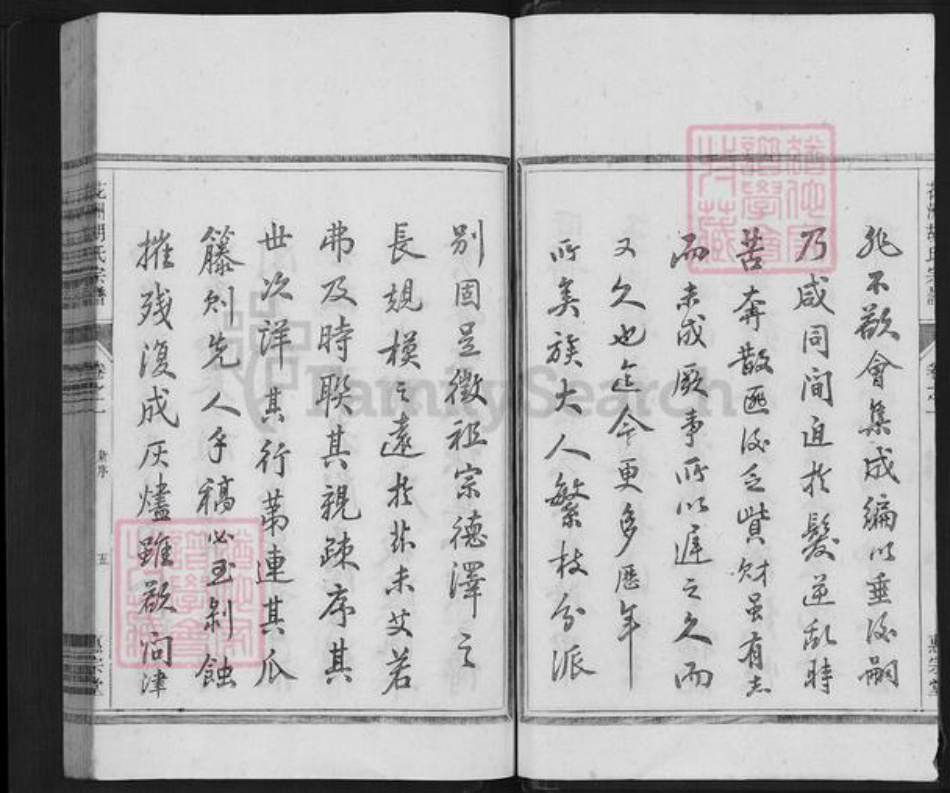 非不欲會集成編以垂後嗣
乃咸同間迫於髮逆亂時
苦奔散匪後乏貲財虽有志
而未成厥事所以遲之久而
又久也迄今更多歷年
所矣族大人繁枝分派
別固是徵祖宗德澤之
長規模之遠於茲未艾若
弗及時聯其親疎序其
世次詳其行第連其瓜
籐則先人手稿必至剝蝕
摧残復成灰燼雖欲问津
花洲胡氏宗譜
卷之一
五
惠宗堂
FamilySearch